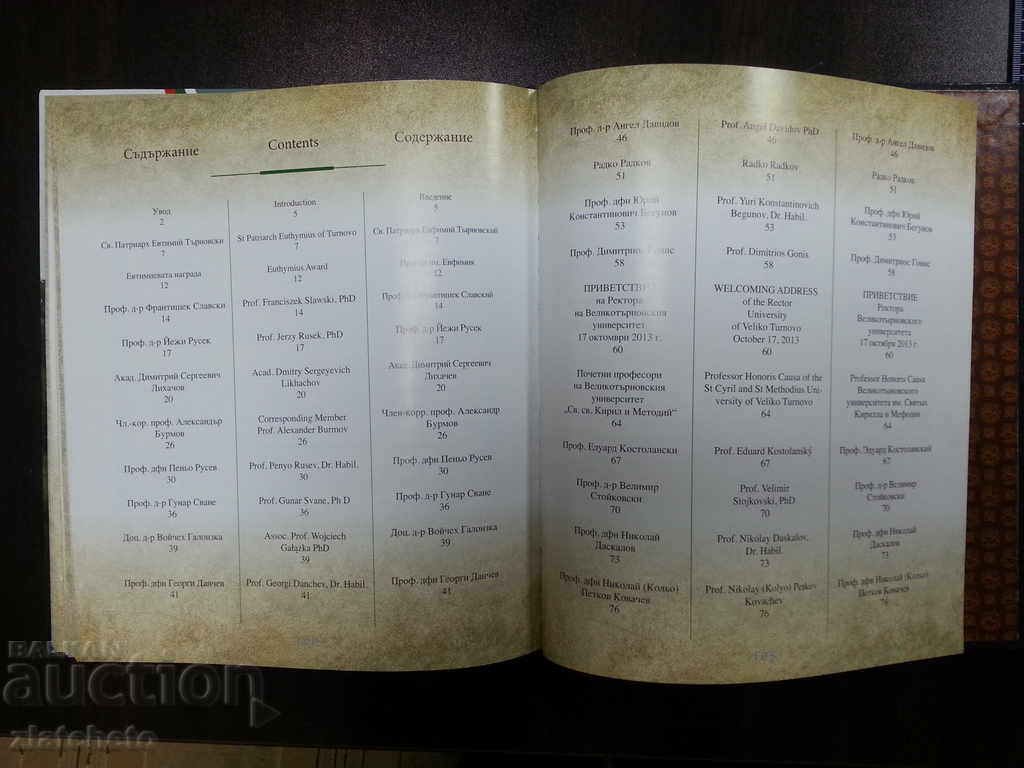 Съдържание
Увод
2
Св. Патриарх Евтимий Търновски
7
Евтимиевата награда
12
Проф. д-р Франтишек Славски
14
Проф. д-р Йежи Русек
17
Акад. Димитрий Сергеевич
Лихачов
20
Чл.-кор. проф. Александър
Бурмов
26
Проф. дфн Пеньо Русев
30
Проф. д-р Гунар Сване
36
Доц. д-р Войчех Галонзка
39
Проф. дфн Георги Данчев
41
Contents
Introduction
5
St Patriarch Euthymius of Turnovo
7
Euthymius Award
12
Prof. Franciszek Slawski, PhD
14
Prof. Jerzy Rusek, PhD
17
Acad. Dmitry Sergeyevich
Likhachov
20
Corresponding Member
Prof. Alexander Burmov
26
Prof. Penyo Rusev, Dr. Habil.
30
Prof. Gunar Svane, Ph D
36
Assoc. Prof. Wojciech
Gałązka PhD
39
Prof. Georgi Danchev, Dr. Habil.
41
Содержание
Введение
5
Св. Патриарх Евфимий Тырновский
7
им. Евфимия
12
Проф. д-р Франтишек Славский
14
Проф. д-р Йежи Русек
17
Акад. Димитрий Сергеевич
Лихачев
20
Член-корр. проф. Александр
Бурмов
26
Проф. дфн Пеньо Русев
30
Проф. д-р Гунар Сване
36
Доц. д-р Войчех Галонзка
39
Проф. дфн Георги Данчев
41
Проф. д-р Ангел Давидов
46
Радко Радков
51
Проф. дфн Юрий
Константинович Бегунов
53
Проф. Димитриос Гонис
58
ПРИВЕТСТВИЕ
на Ректора
на Великотърновския
университет
17 октомври 2013 г.
60
Почетни професори
на Великотърновския
университет
„Св. св. Кирил и Методий“
64
Проф. Едуард Костолански
67
Проф. д-р Велимир
Стойковски
70
Проф. дфн Николай
Даскалов
73
Проф. дфн Николай (Кольо)
Петков Ковачев
76
Prof. Angel Davidov PhD
46
Radko Radkov
51
Prof. Yuri Konstantinovich
Begunov, Dr. Habil.
53
Prof. Dimitrios Gonis
58
WELCOMING ADDRESS
of the Rector
University
of Veliko Turnovo
October 17, 2013
60
Professor Honoris Causa of the
St Cyril and St Methodius Uni-
versity of Veliko Turnovo
64
Prof. Eduard Kostolanský
67
Prof. Velimir
Stojkovski, PhD
70
Prof. Nikolay Daskalov,
Dr. Habil.
73
Prof. Nikolay (Kolyo) Petkov
Kovachev
76
Проф. д-р Ангел Давидов
46
Радко Радков
51
Проф. дфн Юрий
Константинович Бегунов
53
Проф. Димитриос Гонис
58
ПРИВЕТСТВИЕ
Ректора
Великотырновского
университета
17 октября 2013 г.
60
Professor Honoris Causa
Великотырновского
университета им. Святых
Кирилла и Мефодия
64
Проф. Эдуард Костоланский
67
Проф. д-р Велимир
Стойковски
70
Проф. дфн Николай
Даскалов
73
Проф. дфн Николай (Кольо)
Петков Ковачев
76
БАЛКАН
auction
zlatcheto